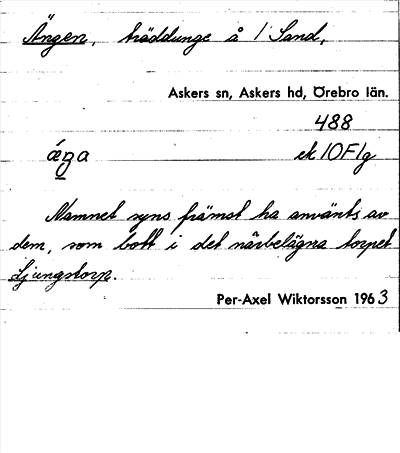 Ängen, träddunge å 1 Sand,
Askers sn, Askers hd, Örebro län.
488
ek 10F1g
Namnet syns främst ha använts av
dem, som bott i det närbelägna torpet
Ljungstorp.
Per-Axel Wiktorsson 1963